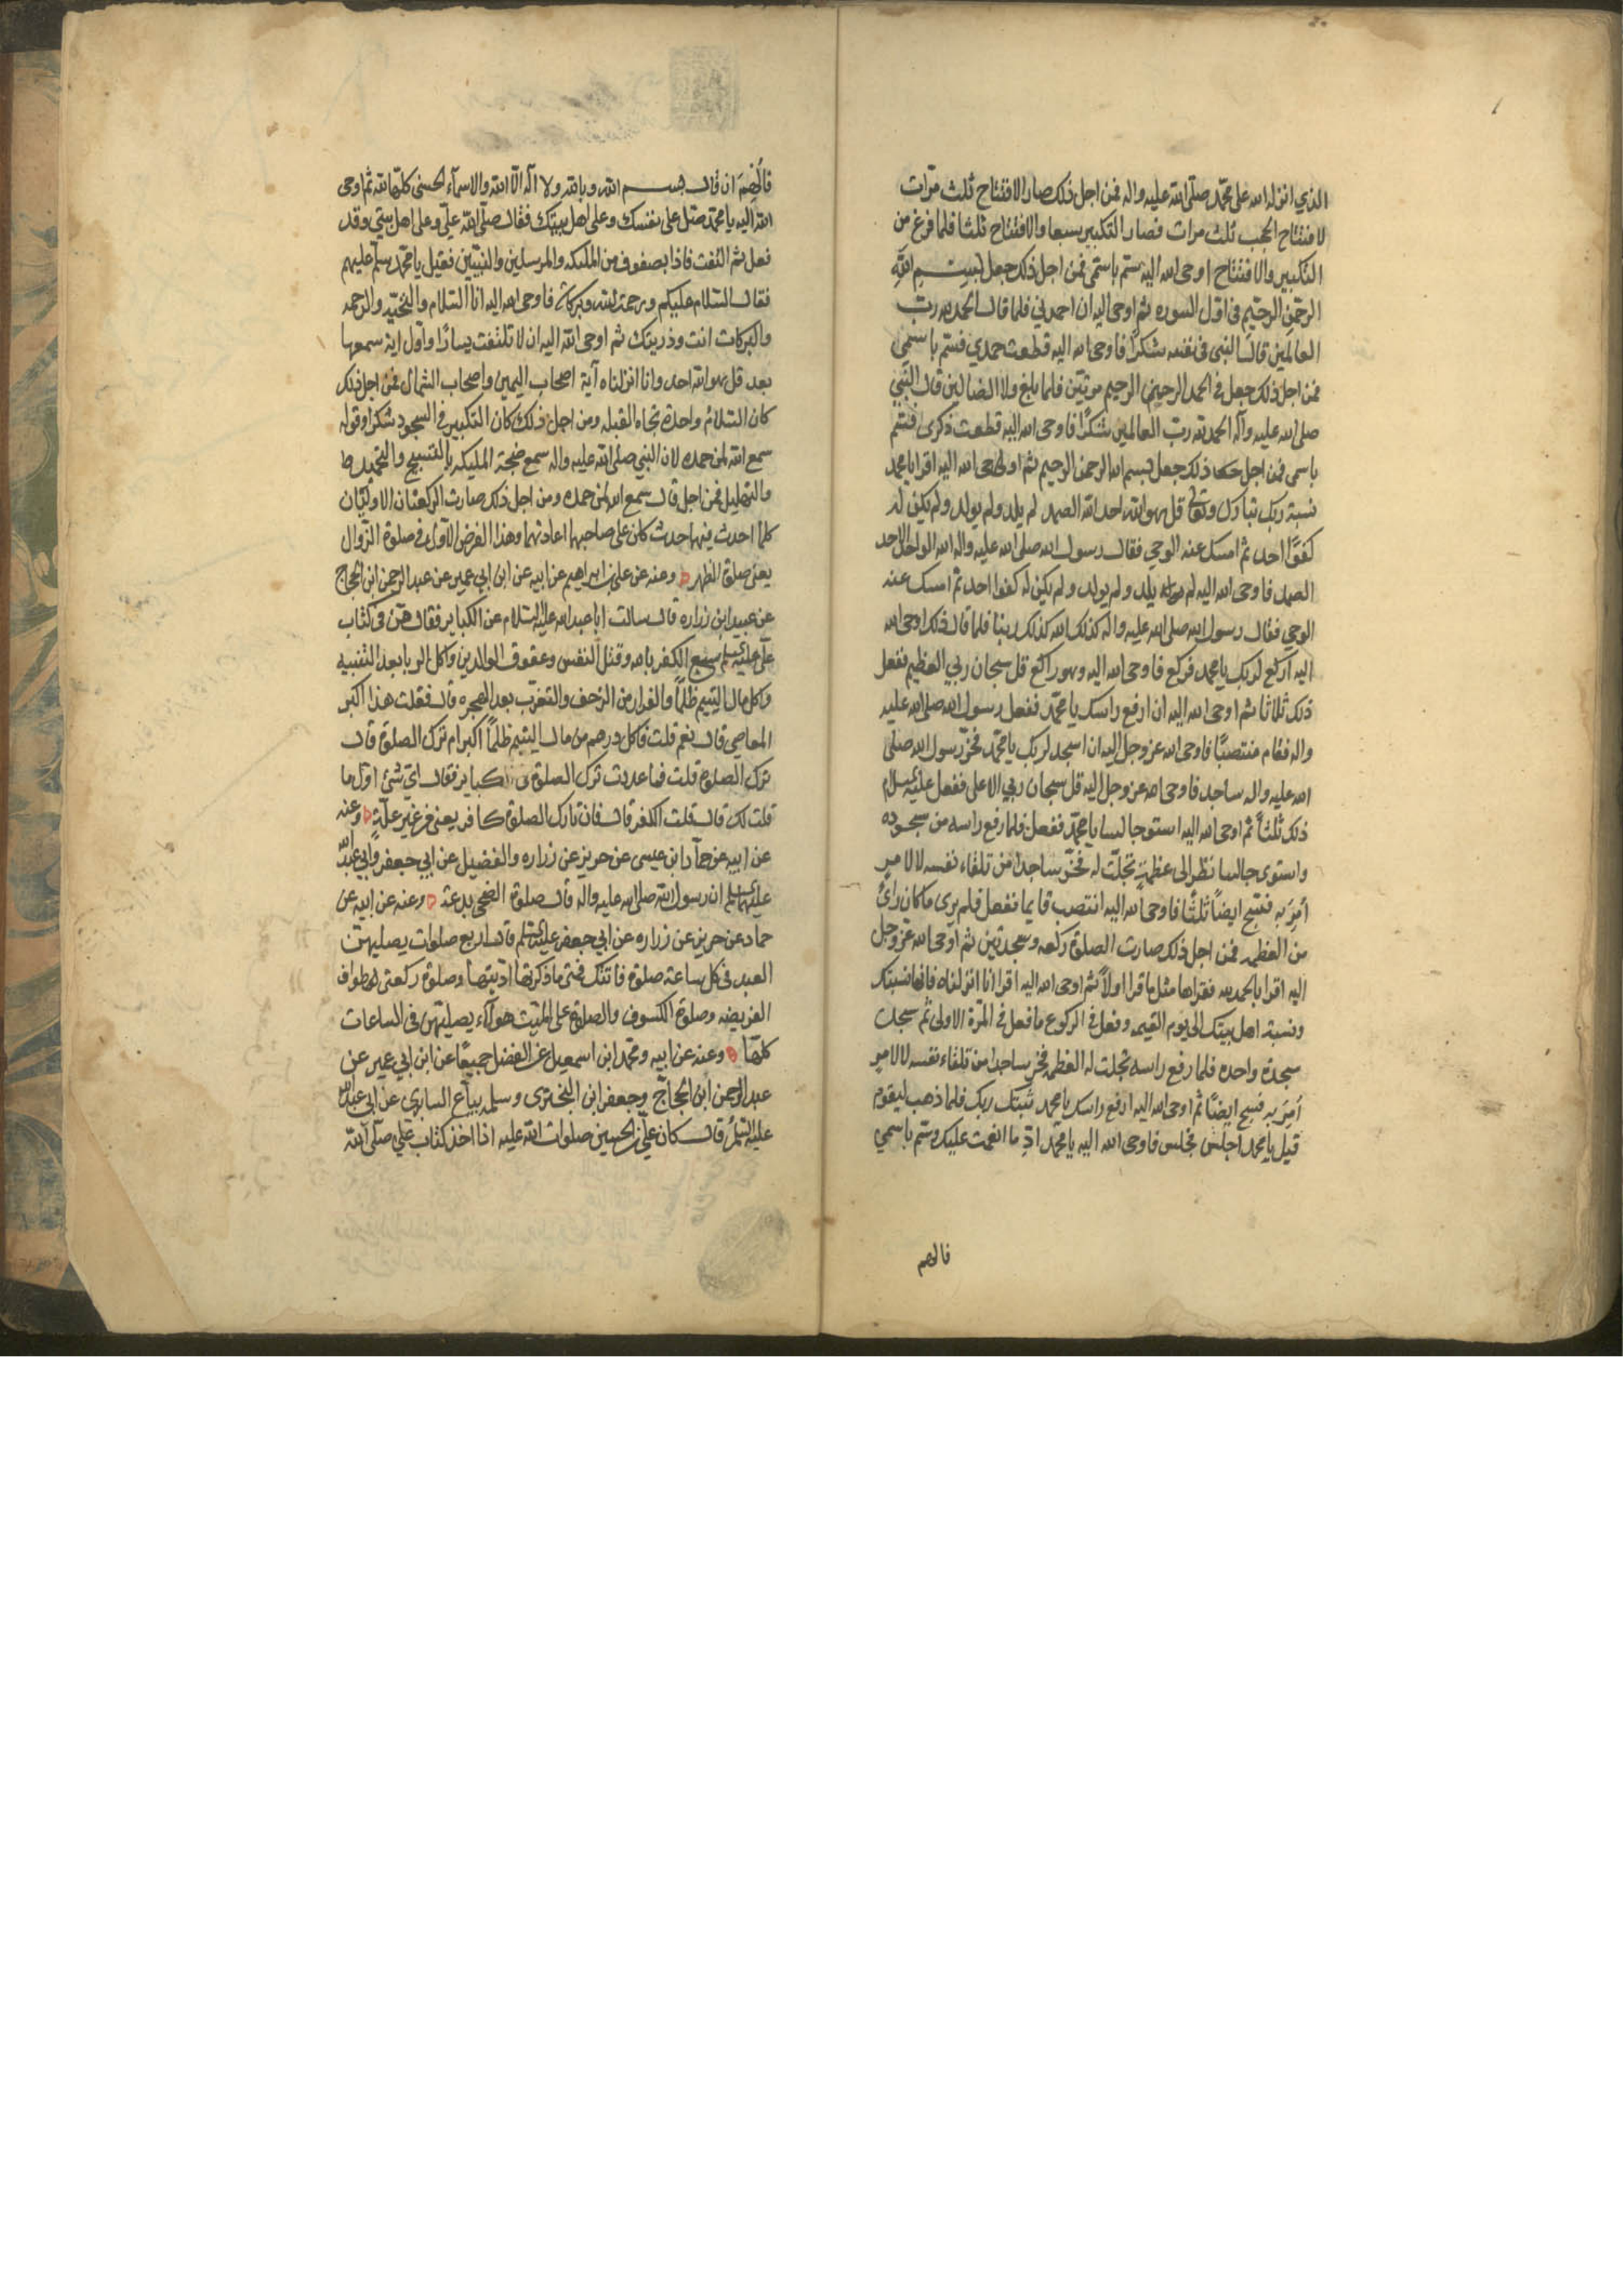 الذي انزله الله على محمد صلى الله عليه واله فمن اجل ذلك صار الافتتاح ثلث مرات
لافتتاح الحجب ثلث مرات فصار التكبير سبعا والافتتاح ثلثا فلما فرغ من
التكبير والافتتاح اوحى الله اليه سم باسمى فمن اجل ذلك جعل بسم الله
الرحمن الرحيم فى اول السوره ثم اوحى اليه ان احمدني فلما قال الحمد لله رب
العالمين قال النبى فى نفسه شكرا فاوحى الله اليه قطعت حمدي فسم باسمى
فمن اجل ذلك جعل فى الحمد الرحمن الرحيم مرتين فلما بلغ ولا الضالين قال النبي
صلى الله عليه وآله الحمد لله رب العالمين شكرا فاوحى الله اليه قطعت ذكرى فسم
باسمى فمن اجل ذلك جعل بسم الله الرحمن الرحيم ثم اوحى الله اليه اقرا يا محمد
نسبة ربك تبارك وتعالى قل هو الله احد الله الصمد لم يلد ولم يولد ولم يكن له
كفوا احد ثم امسك عنه الوحي فقال رسول الله صلى الله عليه واله الله الواحد الاحد
الصمد فاوحى الله اليه لم يلد ولم يولد ولم يكن له كفوا احد ثم امسك عنه
الوحي فقال رسول الله صلى الله عليه واله كذلك الله كذلك ربنا فلما قال ذلك اوحى الله
اليه اركع لربك يا محمد فركع فاوحى الله اليه وهو راكع قل سبحان ربي العظيم ففعل
ذلك ثلاثا ثم اوحى الله اليه ان ارفع راسك يا محمد ففعل رسول الله صلى الله عليه
واله فقام منتصبا فاوحى الله عز وجل اليه ان اسجد لربك يا محمد فخر رسول الله صلى
الله عليه واله ساجدا فاوحى الله عز وجل اليه قل سبحان ربي الاعلى ففعل عليه السلام
ذلك ثلثا ثم اوحى الله اليه استو جالسا يا محمد ففعل فلما رفع راسه من سجوده
واستوى جالسا نظر الى عظمة تجلت له فخر ساجدا من تلقاء نفسه لا لامر
أمر به فسبح ايضا ثلثا فاوحى الله اليه انتصب قايما ففعل فلم يرى ما كان راى
من العظمه فمن اجل ذلك صارت الصلوة ركعه وسجدتين ثم اوحى الله عز وجل
اليه اقرا بالحمد لله فقراها مثل ما قرا اولا ثم اوحى الله اليه اقرا انا انزلناه فانها نسبتك
ونسبة اهل بيتك الى يوم القيمه وفعل فى الركوع ما فعل فى المرة الاولى ثم سجد
سجدة واحده فلما رفع راسه تجلت له العظمه فخر ساجدا من تلقاء نفسه لا لامر
أمر به فسبح ايضا ثم اوحى الله اليه ارفع راسك يا محمد ثبتك ربك فلما ذهب ليقوم
قيل يا محمد اجلس فجلس فاوحى الله اليه يا محمد اذا ما انعمت عليك فسم باسمي
فالهم
فألهم ان قال بسم الله وبالله ولا اله الا الله والاسماء الحسنى كلها لله ثم اوحى
الله اليه يا محمد صل على نفسك وعلى اهل بيتك فقال صلى الله علي وعلى اهل بيتي وقد
فعل ثم التفت فاذا بصفوف من الملئكه والمرسلين والنبيين فقيل يا محمد سلم عليهم
فقال السلام عليكم ورحمة الله وبركاته فاوحى الله اليه انا السلام والتحيه والرحمه
والبركات انت وذريتك ثم اوحى الله اليه ان لا تلتفت يسارا واول اية سمعها
بعد قل هو الله احد وانا انزلناه آية اصحاب اليمين واصحاب الشمال فمن اجل ذلك
كان السلام واحدة تجاه القبله ومن اجل ذلك كان التكبير فى السجود شكرا وقوله
سمع الله لمن حمده لان النبي صلى الله عليه واله سمع ضجة المليكه بالتسبيح والتحميد
والتهليل فمن اجل قال سمع الله لمن حمده ومن اجل ذلك صارت الركعتان الاوليان
كلما احدث فيها حدث كان على صاحبهما اعادتهما وهذا الفرض الاول فى صلوة الزوال
يعنى صلوة الظهر وعنه عن على بن ابراهيم عن ابيه عن ابن ابي عمير عن عبد الرحمن ابن الحجاج
عن عبيد ابن زراره قال سالت ابا عبد الله عليه السلام عن الكباير فقال هن فى كتاب
على عليه السلام سبع الكفر بالله وقتل النفس وعقوق الوالدين واكل الربا بعد التنبيه
واكل مال اليتيم ظلما والفرار من الزحف والتعرب بعد الهجره قال فقلت هذا اكبر
المعاصي قال نعم قلت فاكل درهم من مال اليتيم ظلما اكبر ام ترك الصلوة قال
ترك الصلوة قلت فما عددت ترك الصلوة فى الكباير فقال اي شئ اول ما
قلت لك قال قلت الكفر قال فان تارك الصلوة كافر يعنى من غير علة وعنه
عن ابيه عن حماد ابن عيسى عن حريز عن زراره والفضيل عن ابي جعفر وابي عبد الله
عليهما السلم ان رسول الله صلى الله عليه واله قال صلوة الضحى بدعة وعنه عن ابيه عن
حماد عن حريز عن زراره عن ابي جعفر عليه السلم قال اربع صلوات يصليهن
العبد فى كل ساعة صلوة فاتتك فمتى ما ذكرتها اديتها وصلوة ركعتى طواف
الفريضه وصلوة الكسوف والصلوة على الميت هولآء يصليهن فى الساعات
كلها وعنه عن ابيه ومحمد ابن اسمعيل عن الفضل جميعا عن ابن ابي عمير عن
عبد الرحمن ابن الحجاج وجعفر ابن البخترى وسلمه بياع السابري عن ابي عبد الله
عليه السلم قال كان على بن الحسين صلوات الله عليه اذا اخذ كتاب علي صلى الله